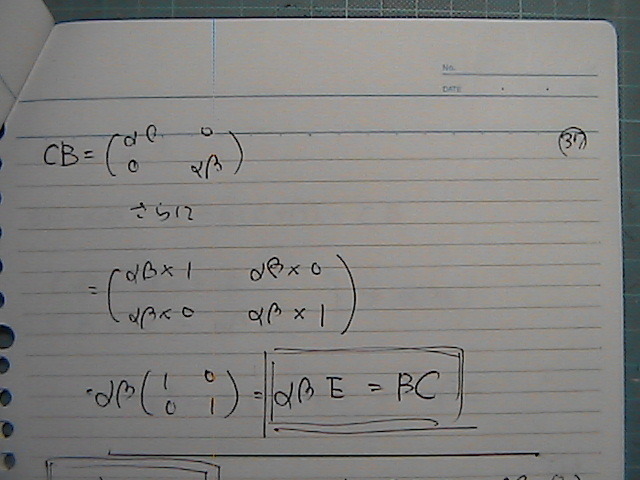 No.
DATE
(37)
CB = (αβ 0
0 αβ)
さらに
= (αβ×1 αβ×0
αβ×0 αβ×1)
= αβ(1 0
0 1) = αβE = BC